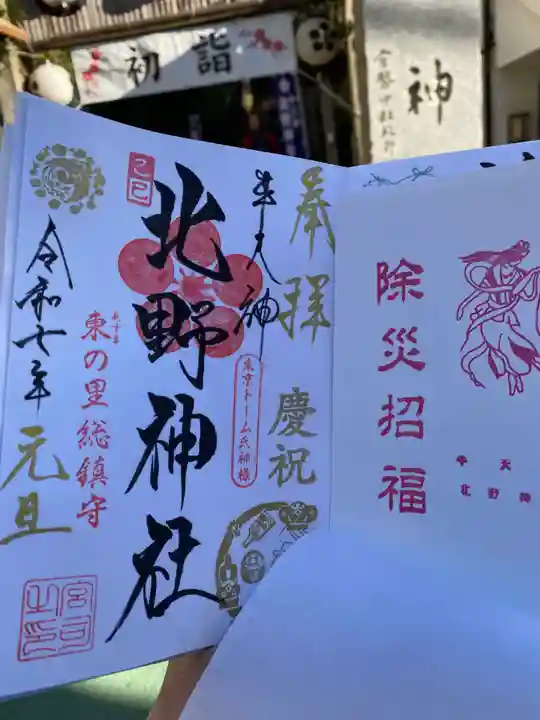 初詣
神
奉拝
慶祝
牛天神
東京ドーム氏神様
乙巳
北野神社
あずま
東の里総鎮守
令和七年
元旦
宮司之印
除災招福
牛天
北野神